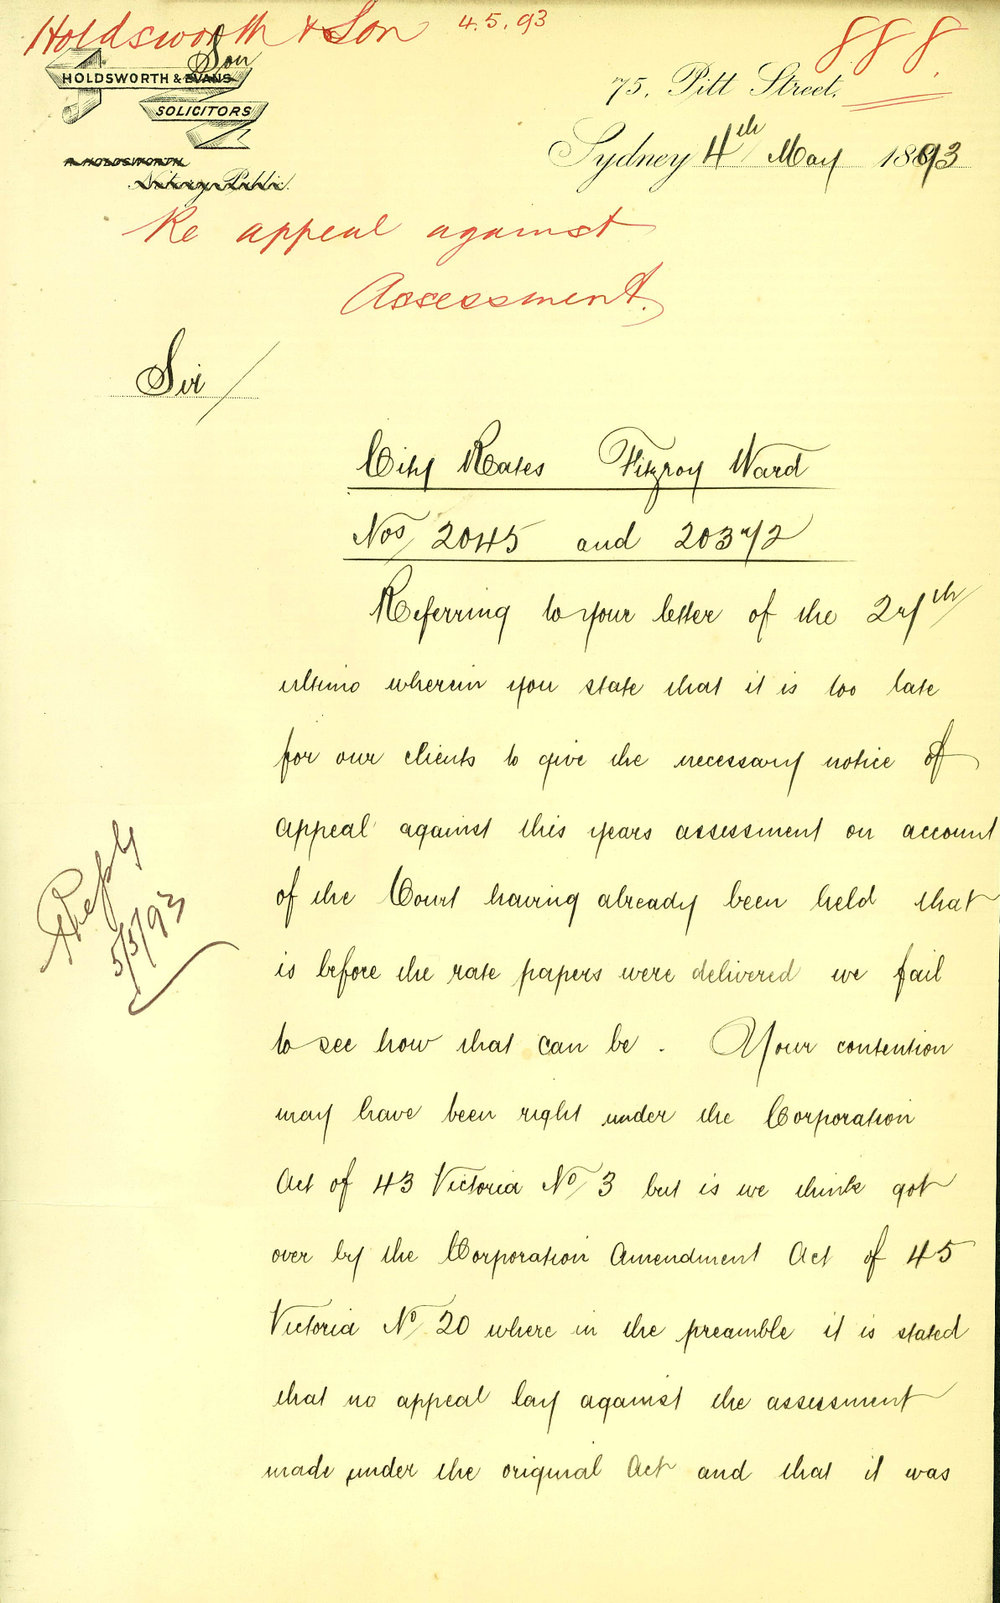 Holdsworth & Son 4.5.93
888.
Son
HOLDSWORTH & EVANS
SOLICITORS
75, Pitt Street,
Sydney 4th May 1893
R HOLDSWORTH
Notary Public.
Re appeal against
Assessment.
Sir/
City Rates Fitzroy Ward
Nos/ 2045 and 2037/2
Referring to your letter of the 27th/
ultimo wherein you state that it is too late
for our clients to give the necessary notice of
appeal against this years assessment on account
of the Court having already been held that
is before the rate papers were delivered we fail
to see how that can be. Your contention
may have been right under the Corporation
Act of 43 Victoria No/ 3 but is we think got
over by the Corporation Amendment Act of 45
Victoria No/ 20 where in the preamble it is stated
that no appeal lay against the assessment
made under the original Act and that it was
Reply
5/5/93